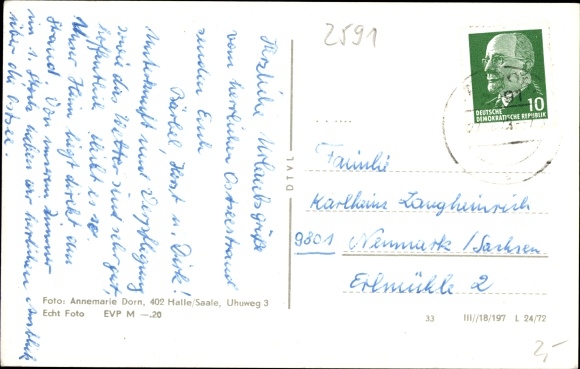 2591
DEUTSCHE
DEMOKRATISCHE REPUBLIK
10
Herzliche Urlaubsgrüße
vom herrlichen Ostseestrand
senden Euch
Bärbel, Horst u. Dirk!
Unterkunft und Verpflegung
sowie das Wetter sind sehr gut,
hoffentlich bleibt es so.
Unser Heim liegt direkt am
Strand. Von unserem Zimmer
im 1. Stock haben wir herrlichen Ausblick
über die Ostsee.
Familie
Karlheinz Langheinrich
9801 Neumark/Sachsen
Erlmühle 2
Foto: Annemarie Dorn, 402 Halle/Saale, Uhuweg 3
Echt Foto EVP M —.20
33 III//18/197 L 24/72
2,-